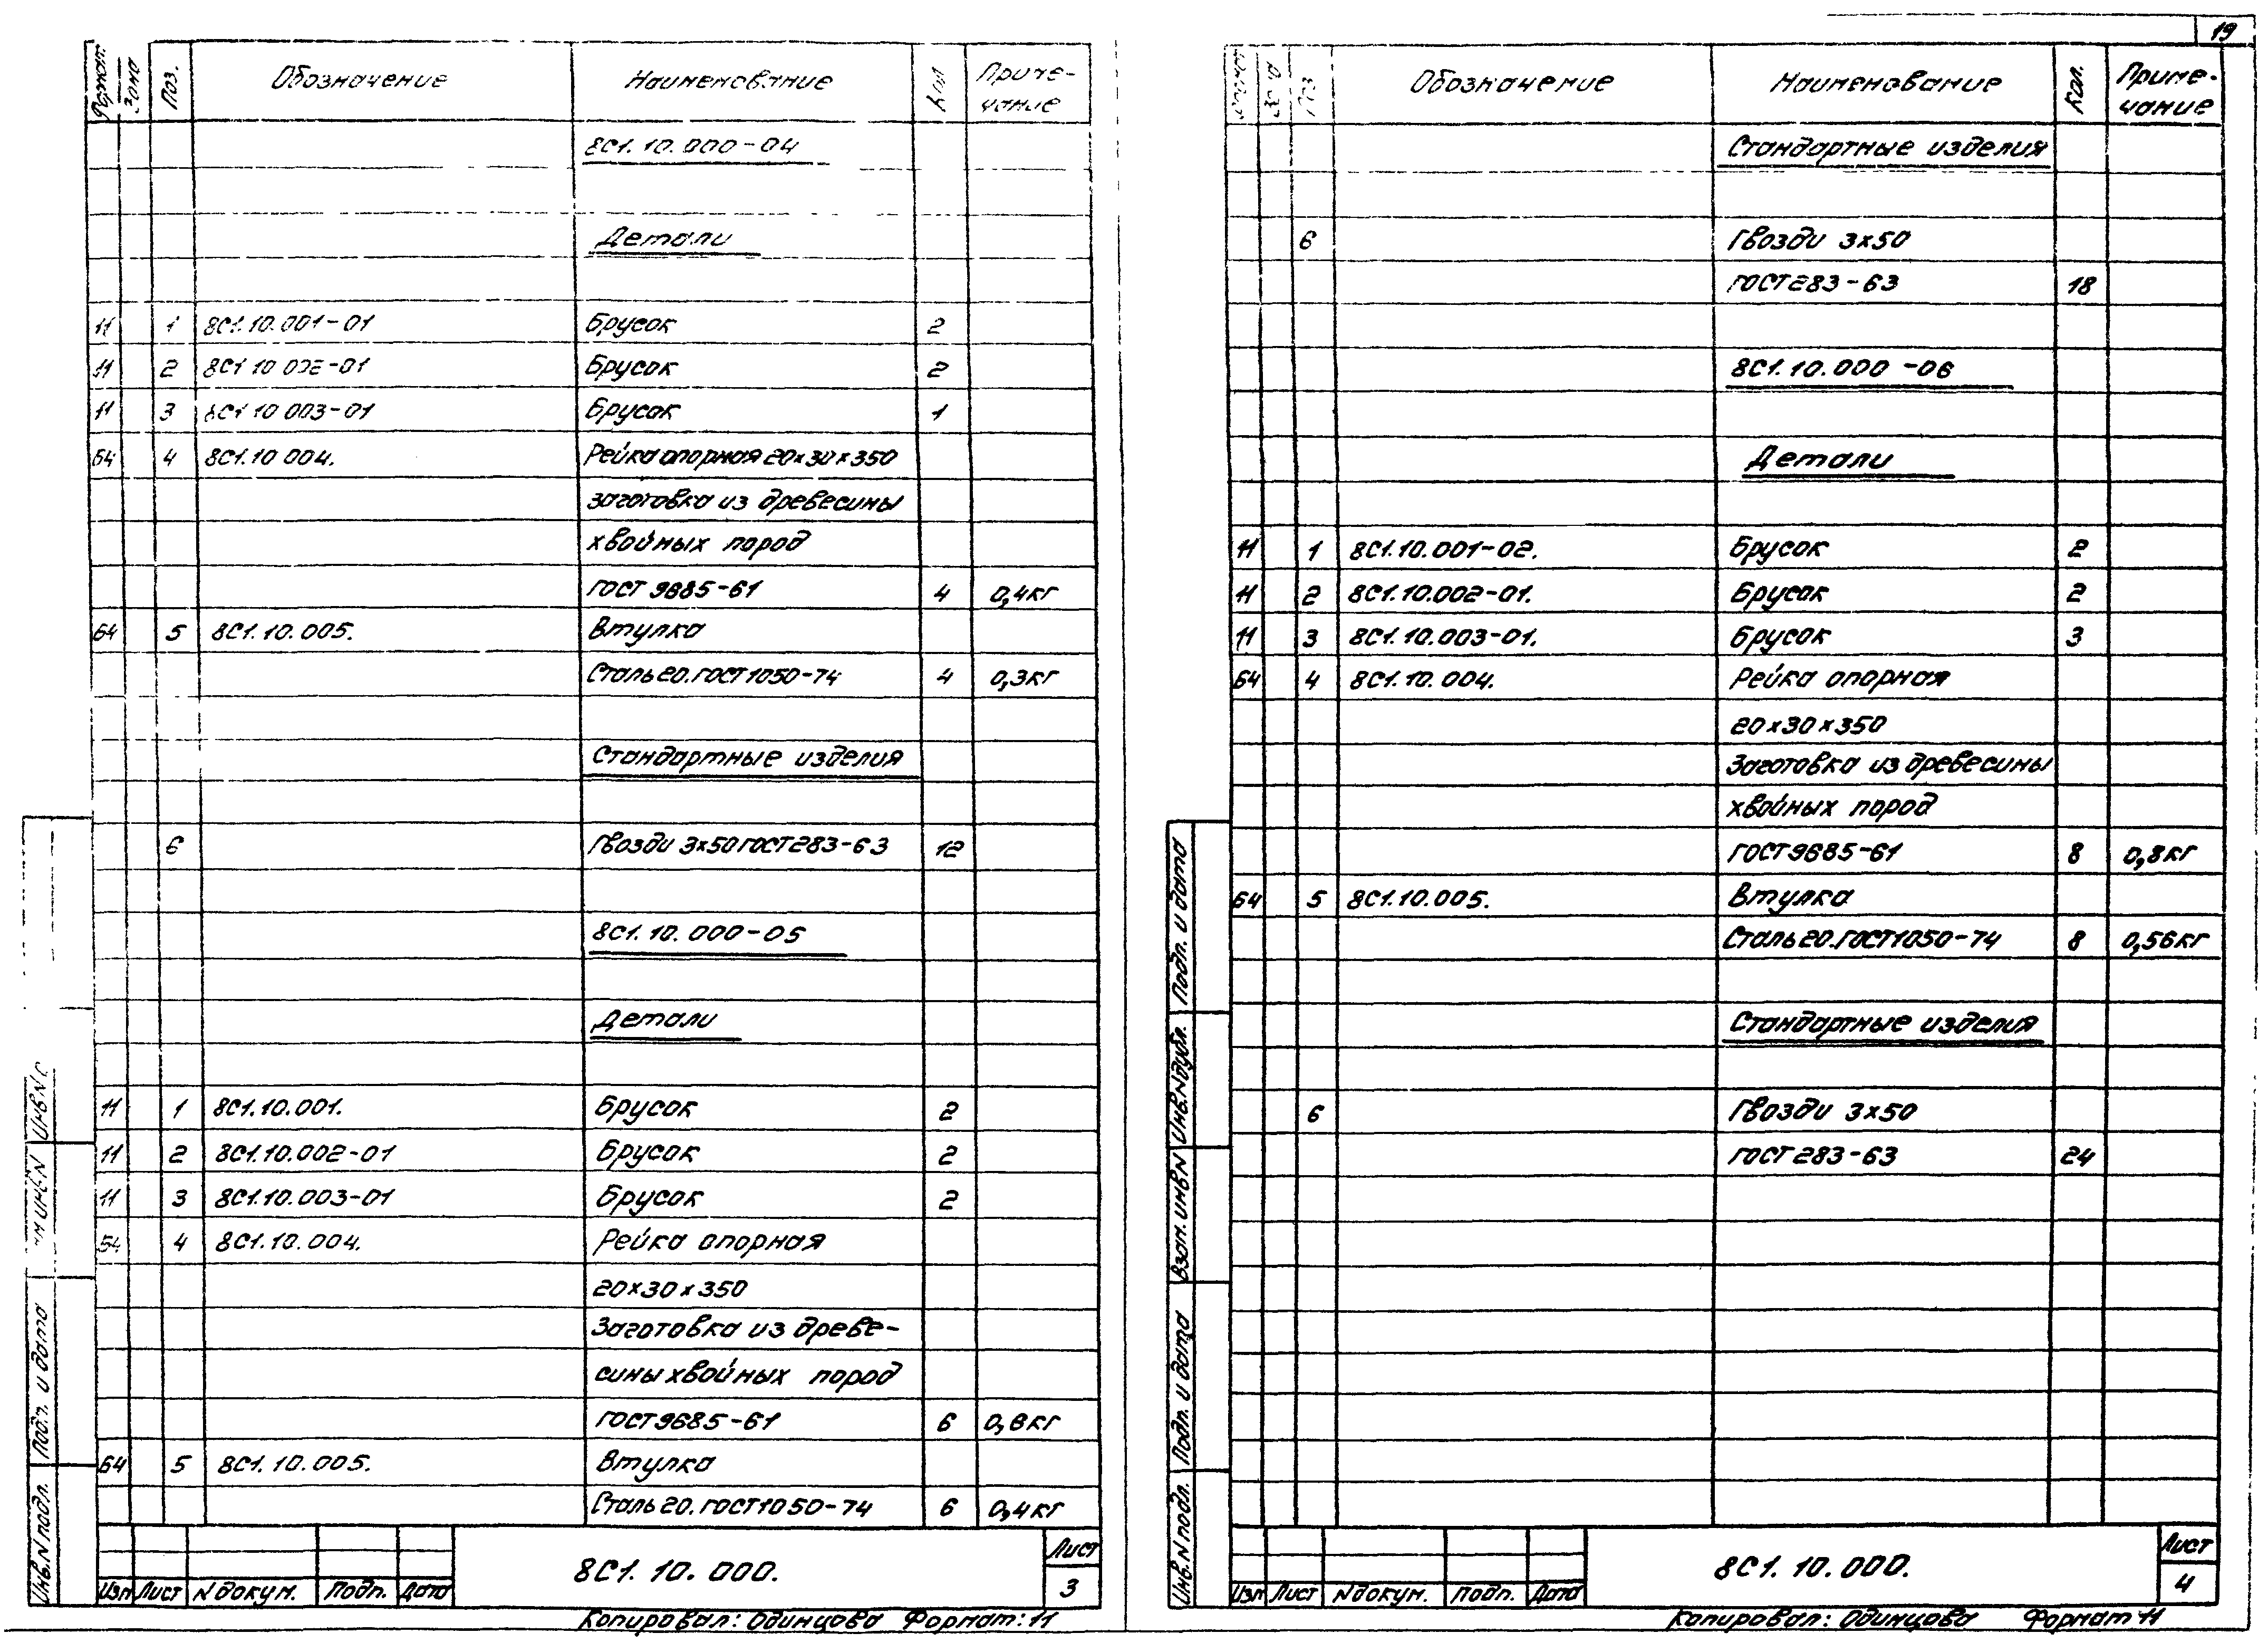 Формат Зона Поз. Обозначение Наименование Кол Приме-
чание
8С1.10.000-04
Детали
11 1 8С1.10.001-01 Брусок 2
11 2 8С1.10.002-01 Брусок 2
11 3 8С1.10.003-01 Брусок 1
64 4 8С1.10.004. Рейка опорная 20х30х350
заготовка из древесины
хвойных пород
ГОСТ 9685-61 4 0,4кг
64 5 8С1.10.005. Втулка
Сталь20.ГОСТ1050-74 4 0,3кг
Стандартные изделия
6 Гвозди 3х50ГОСТ283-63 12
8С1.10.000-05
Детали
11 1 8С1.10.001. Брусок 2
11 2 8С1.10.002-01 Брусок 2
11 3 8С1.10.003-01 Брусок 2
64 4 8С1.10.004. Рейка опорная
20х30х350
Заготовка из древе-
сины хвойных пород
ГОСТ9685-61 6 0,6кг
64 5 8С1.10.005. Втулка
Сталь20.ГОСТ1050-74 6 0,4кг
Инв.N подл. Подп. и дата
Изм Лист N докум. Подп. Дата
8С1.10.000.
Лист
3
Копировал: Одинцова Формат:11
19
Поз Обозначение Наименование Кол. Приме-
чание
Стандартные изделия
6 Гвозди 3х50
ГОСТ283-63 18
8С1.10.000-06
Детали
11 1 8С1.10.001-02. Брусок 2
11 2 8С1.10.002-01. Брусок 2
11 3 8С1.10.003-01. Брусок 3
64 4 8С1.10.004. Рейка опорная
20х30х350
Заготовка из древесины
хвойных пород
ГОСТ9685-61 8 0,8кг
64 5 8С1.10.005. Втулка
Сталь20.ГОСТ1050-74 8 0,56кг
Стандартные изделия
6 Гвозди 3х50
ГОСТ283-63 24
Инв.N подл. Подп. и дата Взам.инв.N Инв.N дубл. Подп. и дата
Изм Лист N докум. Подп. Дата
8С1.10.000.
Лист
4
Копировал: Одинцова Формат 11